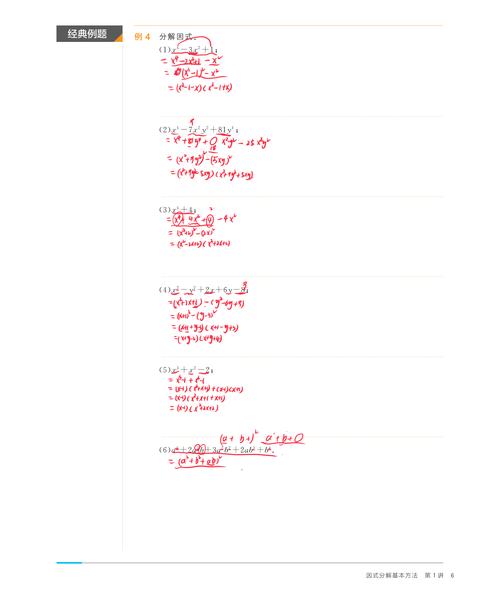 经典例题
例 4 分解因式.
(1) x⁴－3x²＋1;
= x⁴-2x²+1 - x²
= (x²-1)² - x²
= (x²-1-x)(x²-1+x)
(2) x⁴－7x²y²＋81y⁴;
= x⁴+81y⁴+ 18 x²y² - 25x²y²
= (x²+9y²)² - (5xy)²
= (x²+9y²-5xy)(x²+9y²+5xy)
(3) x⁴＋4;
= x⁴+4x²+4 - 4x²
= (x²+2)² - (2x)²
= (x²-2x+2)(x²+2x+2)
(4) x²－y²＋2x＋6y－8;
= (x²+2x+1) - (y²-6y+9)
= (x+1)² - (y-3)²
= (x+1+y-3)(x+1-y+3)
= (x+y-2)(x-y+4)
(5) x³＋x²－2;
= x³-1+x²-1
= (x-1)(x²+x+1)+(x-1)(x+1)
= (x-1)(x²+x+1+x+1)
= (x-1)(x²+2x+2)
(a+b+)² a²+b+
(6) a⁴＋2a³b＋3a²b²＋2ab³＋b⁴.
= (a²+b²+ab)²
因式分解基本方法 第 1 讲 6